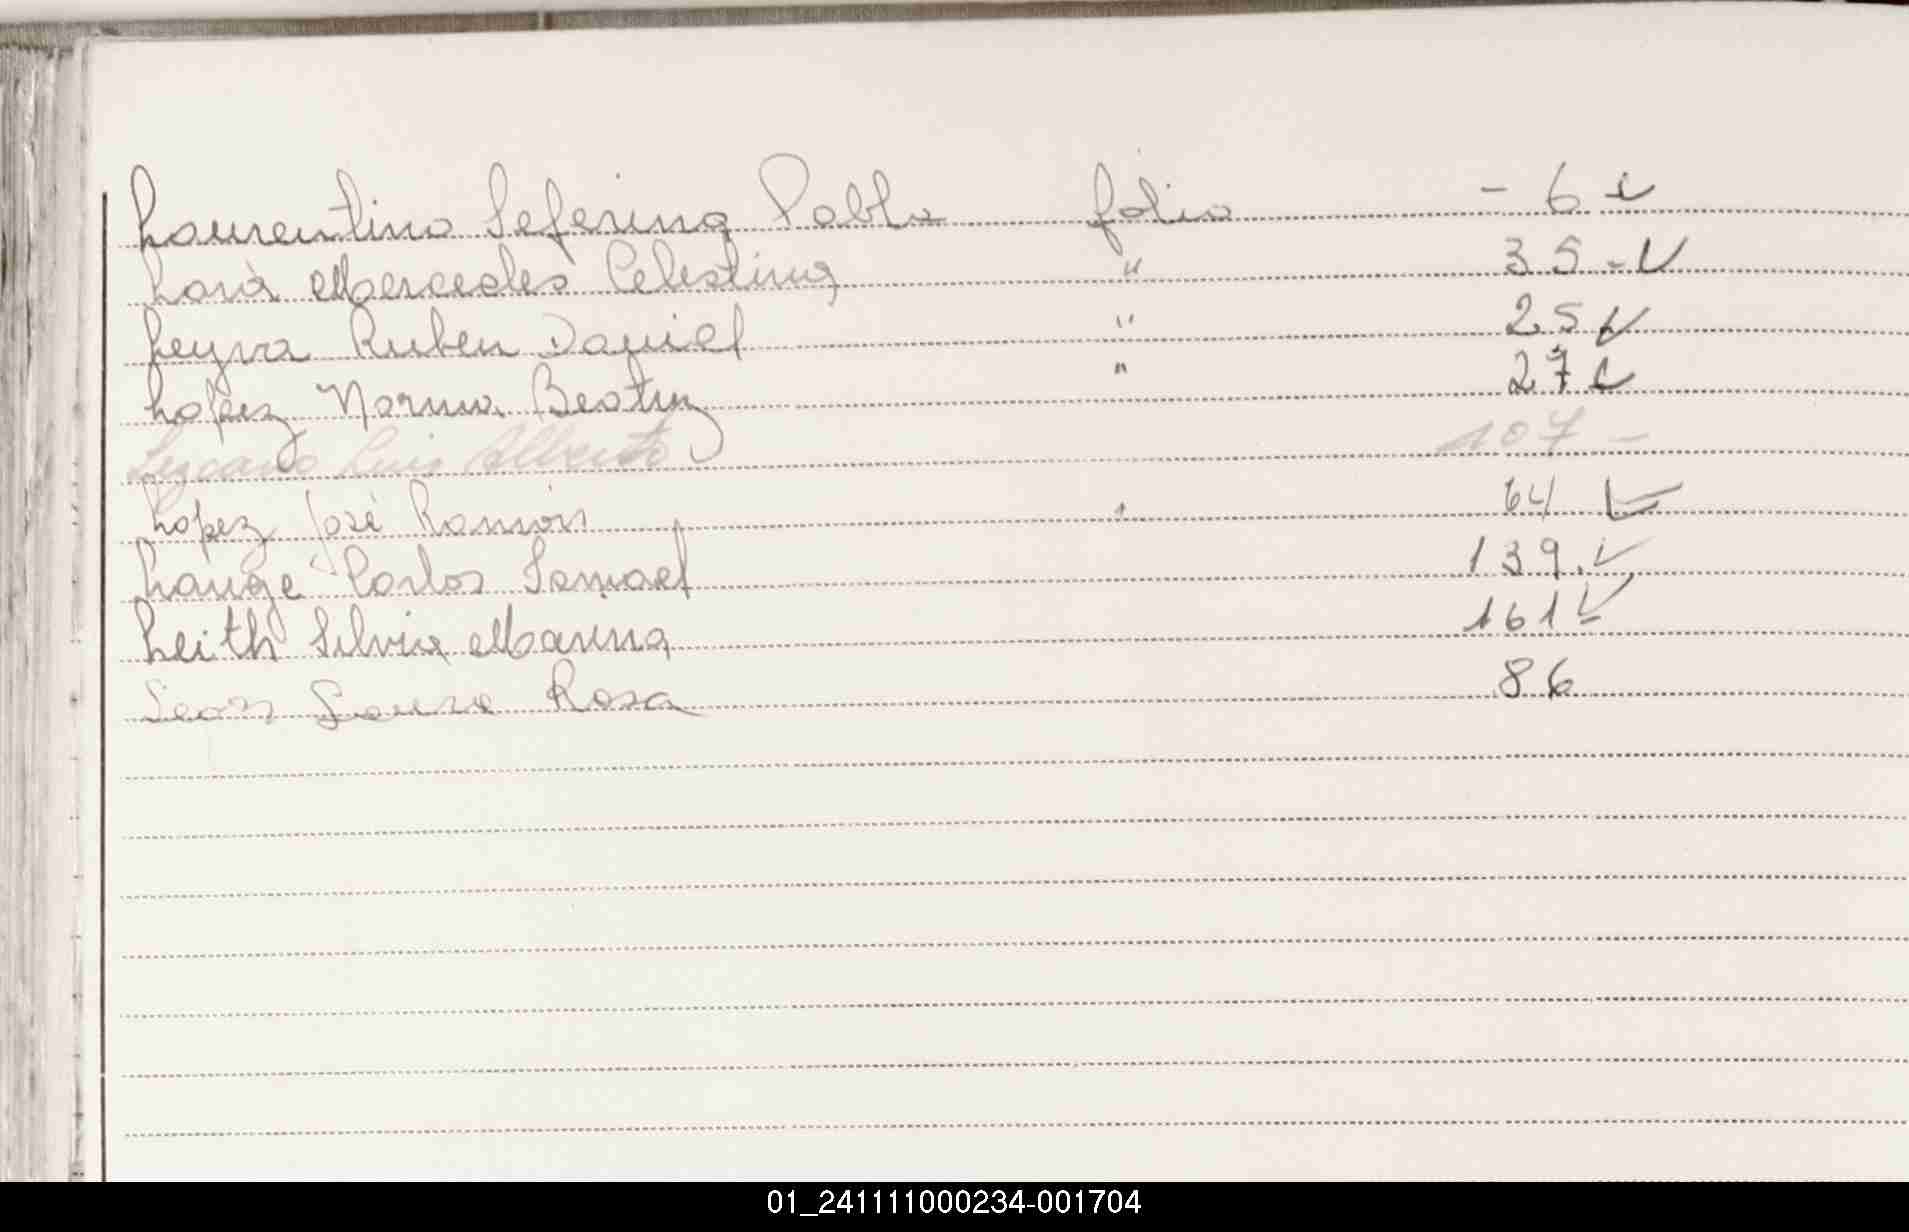 Laurentino Seferina Pabla folio - 6
Lará Mercedes Celestina " 35 -
Leyva Ruben Daniel " 25
Lopez Norma Beatriz " 27
Lezcano Luis Alberto 107 -
Lopez José Ramón " 64
Lange Carlos Ismael 139.
Leith Silvia Marina 161
Leon Rosa 86
01_241111000234-001704